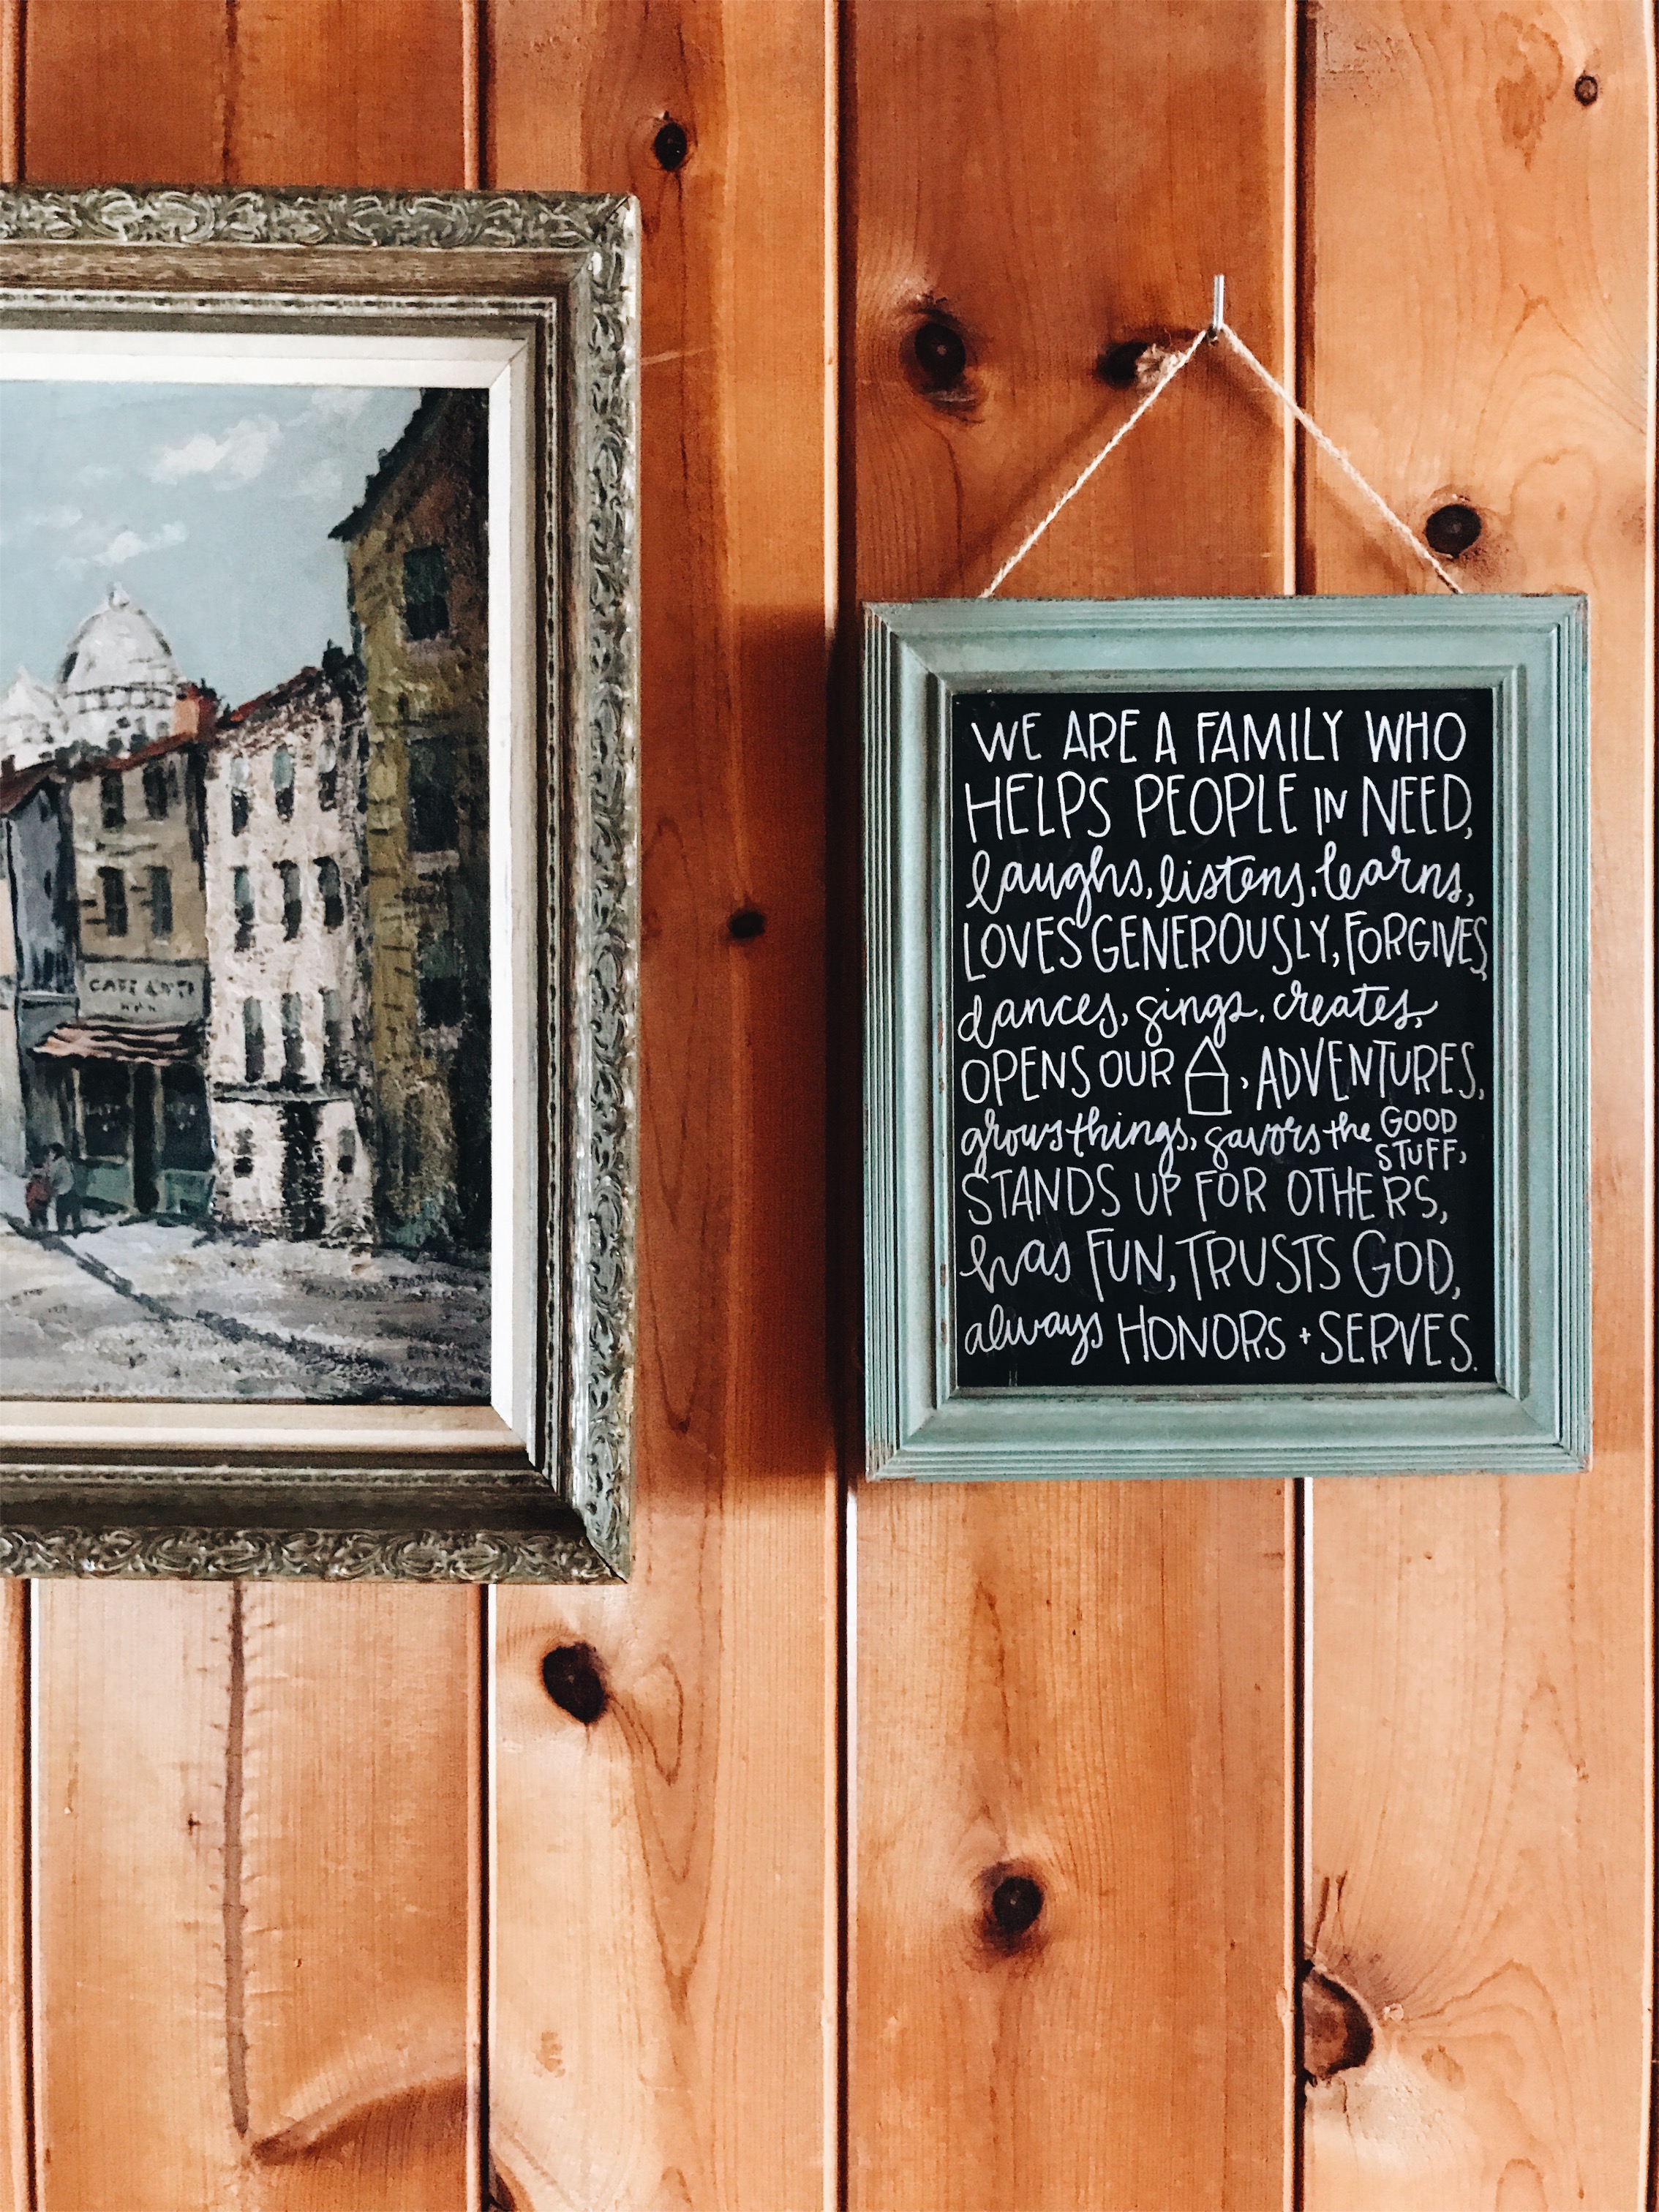 WE ARE A FAMILY WHO
HELPS PEOPLE IN NEED,
laughs, listens, learns,
LOVES GENEROUSLY, FORGIVES,
dances, sings, creates,
OPENS OUR , ADVENTURES,
grows things, savors the GOOD
STUFF,
STANDS UP FOR OTHERS,
has FUN, TRUSTS GOD,
always HONORS + SERVES.